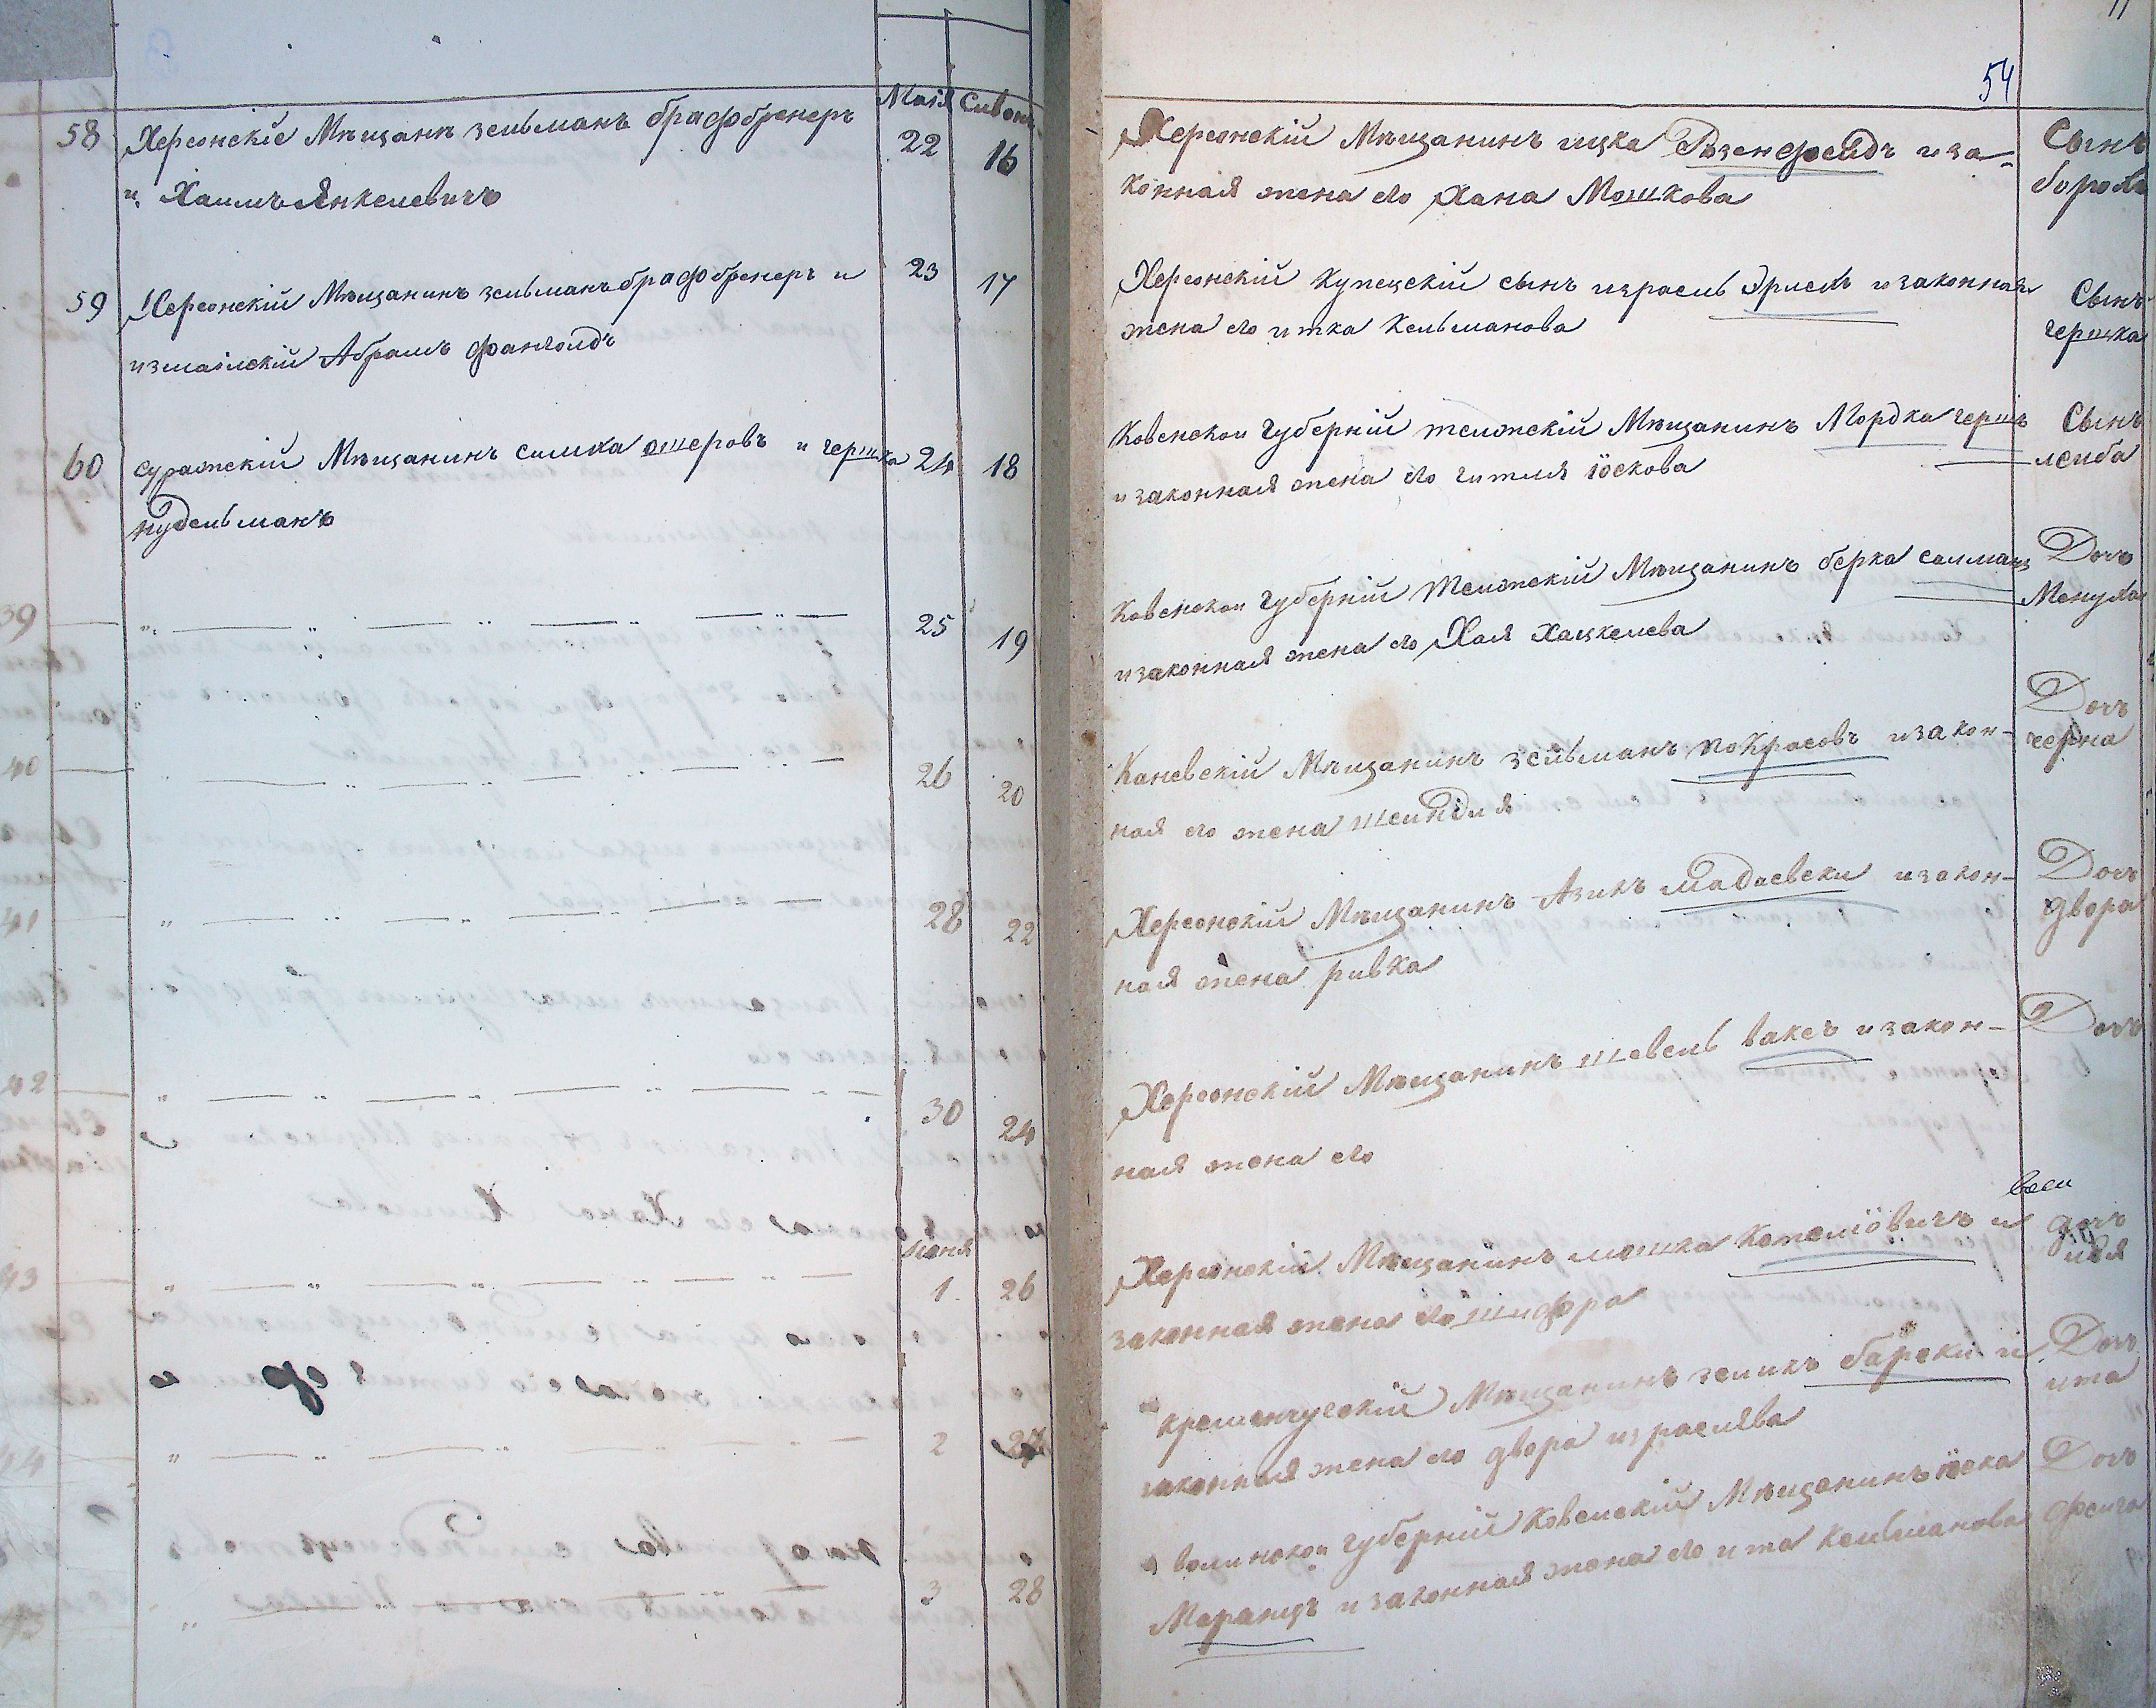 54
Мая Сивонъ
58 Херсонскіе Мѣщане зельманъ Графбренеръ 22 16
и Хаимъ Янкелевичъ
59 Херсонскій Мѣщанинъ зельманъ Графбренеръ и 23 17
измаилскій Абрамъ Фангольдъ
60 суражскій Мѣщанинъ симха ошеровъ и гершка 24 18
нудельманъ
39 25 19
40 26 20
41 28 22
42 30 24
Іюня
43 1 26
44 2 27
45 3 28
Херсонскій Мѣщанинъ ицка Розенфельдъ и за-
конная жена его Хана Мошкова
Сынъ
борохъ
Херсонскій купецскій сынъ израель Эрлехъ и законная
жена его итка Кельманова
Сынъ
гершка
Ковенской губерніи тельжскій Мѣщанинъ Мордка гершъ
и законная жена его гитля іоскова
Сынъ
лейба
Ковенской губерніи Тельжскій Мѣщанинъ берка салманъ
и законная жена его Хая хацкелева
Дочь
Менуха
Каневскій Мѣщанинъ зельманъ покрасовъ и закон-
ная его жена шейндля
Дочь
черна
Херсонскій Мѣщанинъ Азикъ Мадаевски и закон-
ная жена ривка
Дочь
двора
Херсонскій Мѣщанинъ шевель ваксъ и закон-
ная жена его
Дочь
Херсонскій Мѣщанинъ мошка Котелёвичъ и
законная жена его шифра
дочь
Кременчугскій Мѣщанинъ зеликъ барски и
законная жена его двора израелева
Дочь
ита
волинской губерніи Ковельскій Мѣщанинъ іоска
Маранцъ и законная жена его ита Кельманова
Дочь
фейга